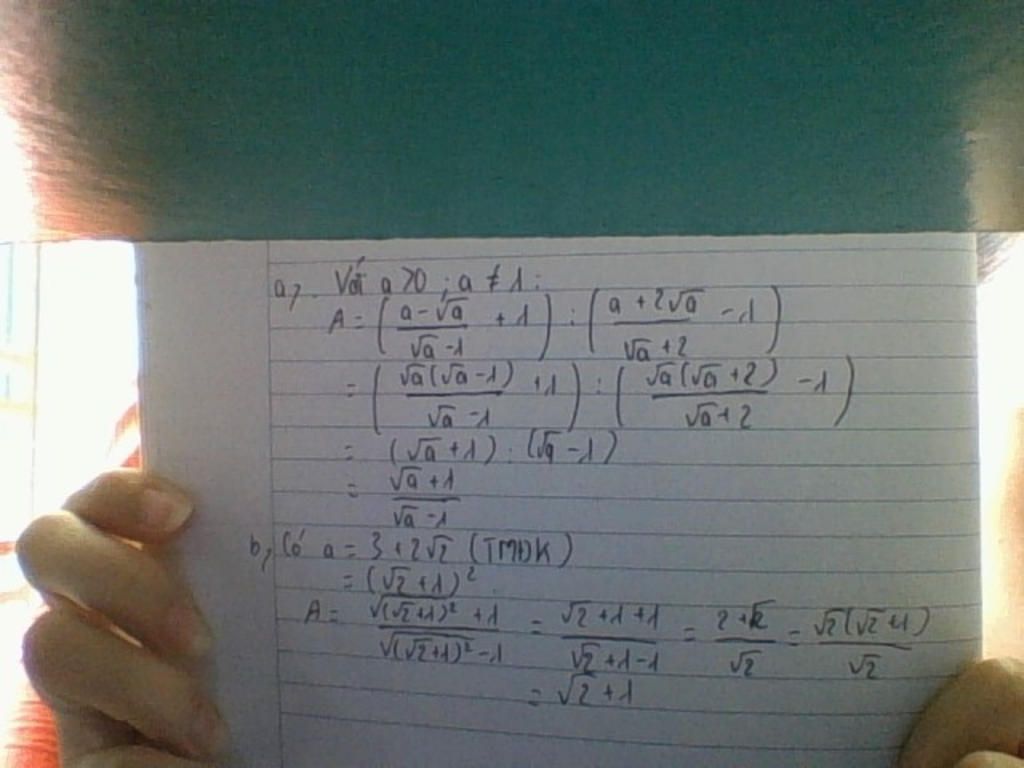 a, Với a >0 ; a ≠ 1 :
A = ( (a - √a)/(√a - 1) + 1 ) : ( (a + 2√a)/(√a + 2) - 1 )
= ( √a(√a - 1)/(√a - 1) + 1 ) : ( √a(√a + 2)/(√a + 2) - 1 )
= (√a + 1) : (√a - 1)
= (√a + 1)/(√a - 1)
b, Có a = 3 + 2√2 (TMĐK)
= (√2 + 1)²
A = (√(√2+1)² + 1)/(√(√2+1)² - 1) = (√2 + 1 + 1)/(√2 + 1 - 1) = (2 + √2)/√2 = √2(√2 + 1)/√2
= √2 + 1